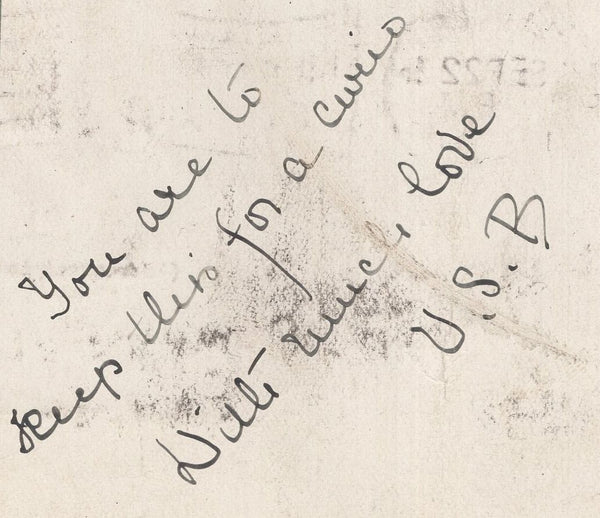 You are to
keep this for a curio
With much love
U.S.B
SEP 22